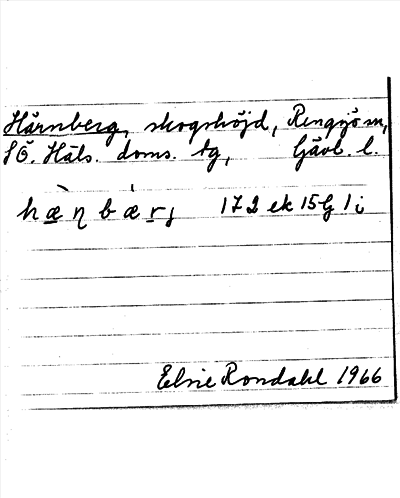 Härnberg, skogshöjd, Rengsjö sn,
SÖ. Häls. doms. tg, Gävl. l.
hæ̀ɳbæ̀rj 172 ek 15 G 1 i
Elsie Rondahl 1966